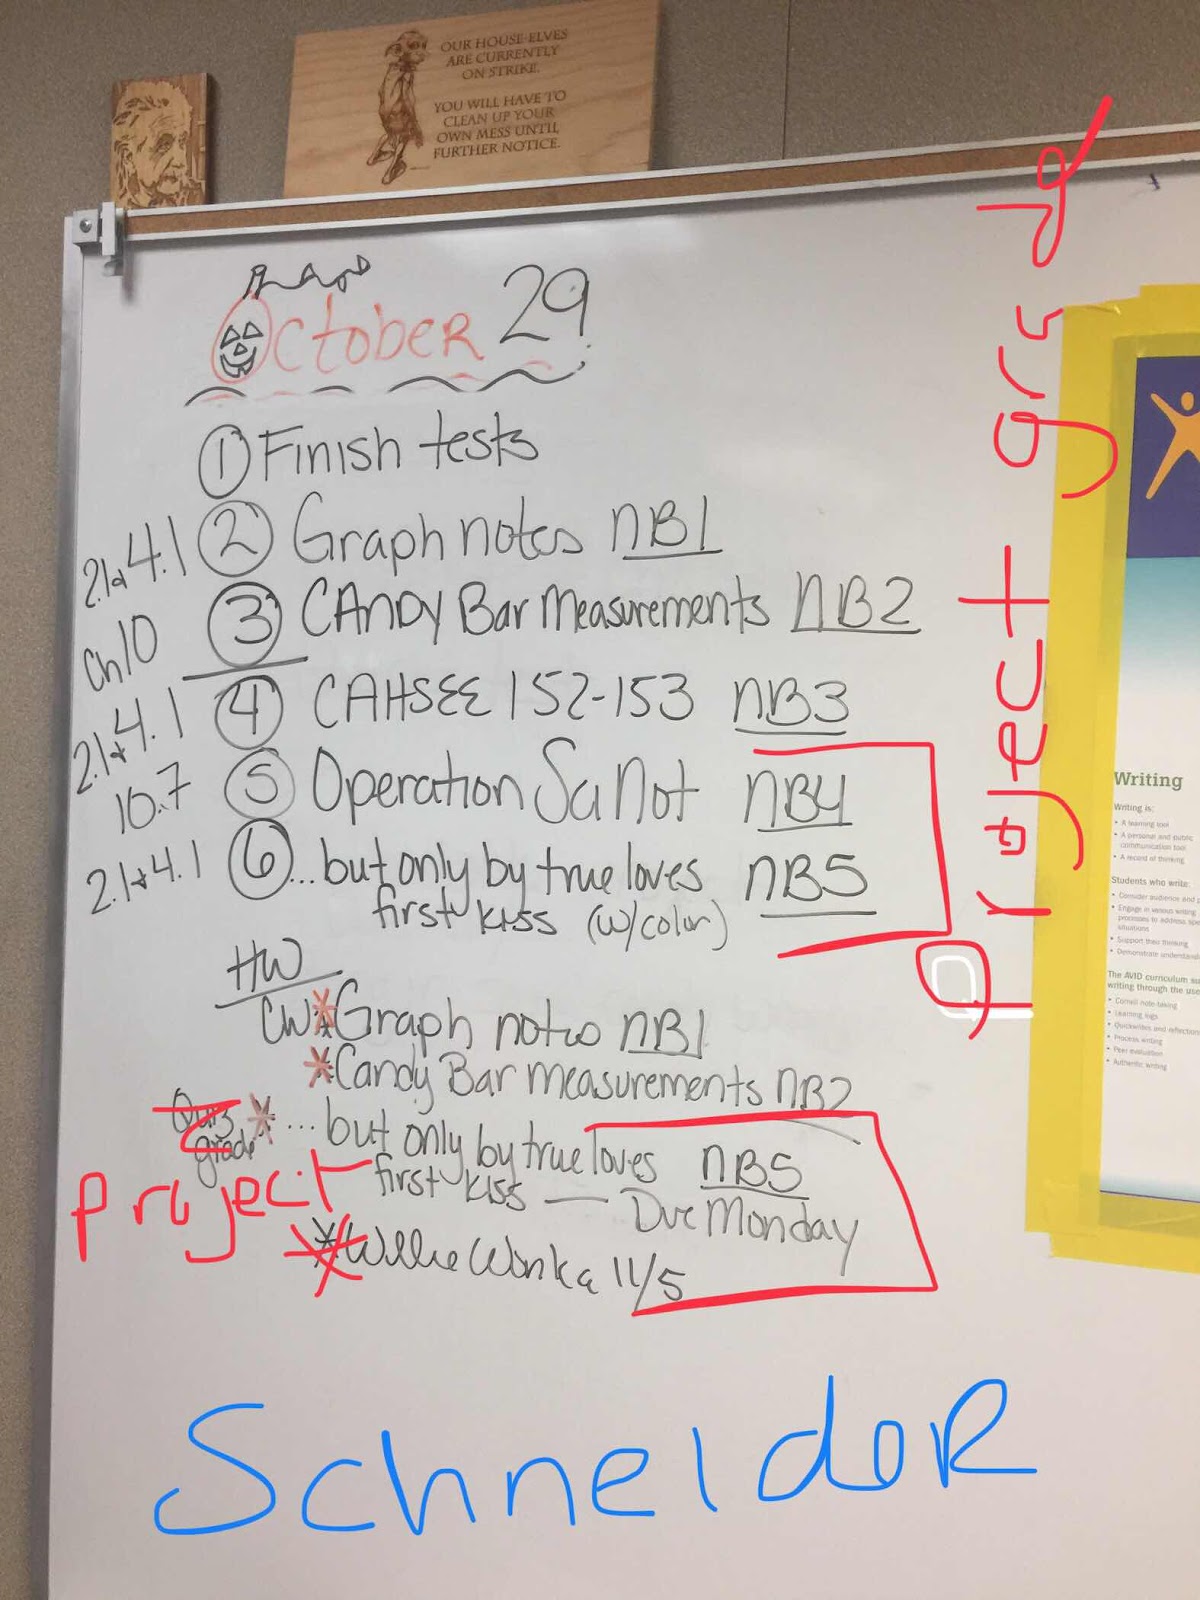 OUR HOUSE-ELVES
ARE CURRENTLY
ON STRIKE.
YOU WILL HAVE TO
CLEAN UP YOUR
OWN MESS UNTIL
FURTHER NOTICE.
October 29
① Finish tests
2.1+4.1 ② Graph notes NB1
Ch10 ③ CANDY Bar Measurements NB2
2.1+4.1 ④ CAHSEE 152-153 NB3
10.7 ⑤ Operation Sa Not NB4
2.1+4.1 ⑥ ...but only by true loves NB5
first kiss (w/color)
project grade
HW
CW * Graph notes NB1
* Candy Bar Measurements NB2
Quiz grade * ... but only by true loves NB5
Project first kiss — Due Monday
* Willie Wonka 11/5
SchneideR
Writing
Writing is:
• A learning tool
• A personal and public
communication tool
• A record of thinking
Students who write:
• Consider audience and
• Engage in various writing
processes to address
situations
• Support their thinking
• Demonstrate
The AVID curriculum
writing through the use
• Cornell note-taking
• Learning logs
• Quickwrites and
• Process writing
• Peer evaluation
• Authentic writing